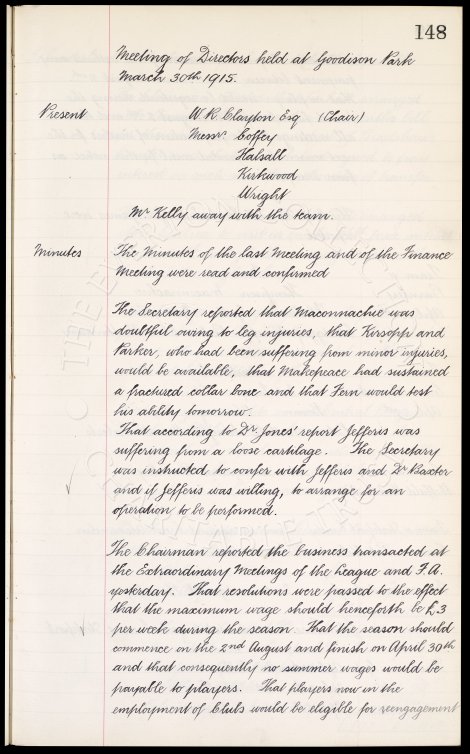 148
Meeting of Directors held at Goodison Park
March 30th 1915.
Present W.R. Clayton Esq (Chair)
Messrs. Coffey
Halsall
Kirkwood
Wright
Mr Kelly away with the team.
Minutes The Minutes of the last Meeting and of the Finance
Meeting were read and confirmed
The Secretary reported that Maconnachie was
doubtful owing to leg injuries, that Kirsopp and
Parker, who had been suffering from minor injuries,
would be available, that Makepeace had sustained
a fractured collar bone and that Fern would test
his ability tomorrow.
That according to Dr. Jones' report Jefferis was
suffering from a loose cartilage. The Secretary
was instructed to confer with Jefferis and Dr Baxter
and if Jefferis was willing, to arrange for an
operation to be performed.
The Chairman reported the business transacted at
the Extraordinary Meetings of the League and F.A.
yesterday. That resolutions were passed to the effect
that the maximum wage should henceforth be £3
per week during the season. That the season should
commence on the 2nd August and finish on April 30th
and that consequently no summer wages would be
payable to players. That players now in the
employment of Clubs would be eligible for reengagement